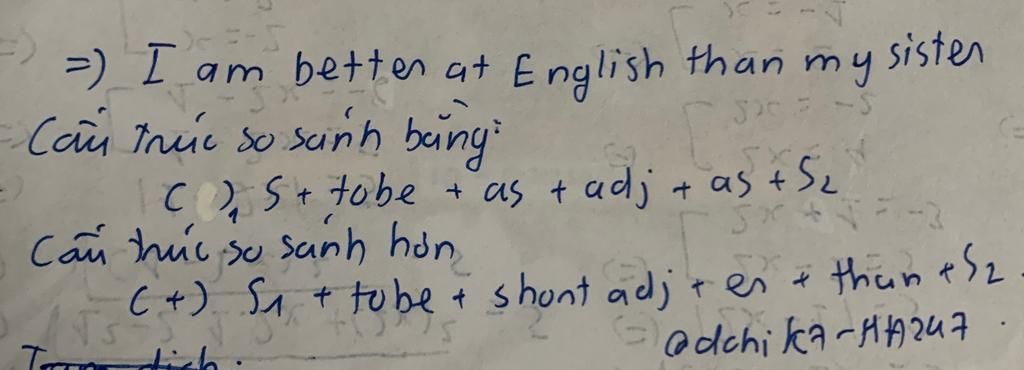 =) I am better at English than my sister
Cấu trúc so sánh bằng:
( ) S1 + tobe + as + adj + as + S2
Cấu trúc so sánh hơn
(+) S1 + tobe + short adj + er + than + S2.
@dchi K7-HA247.